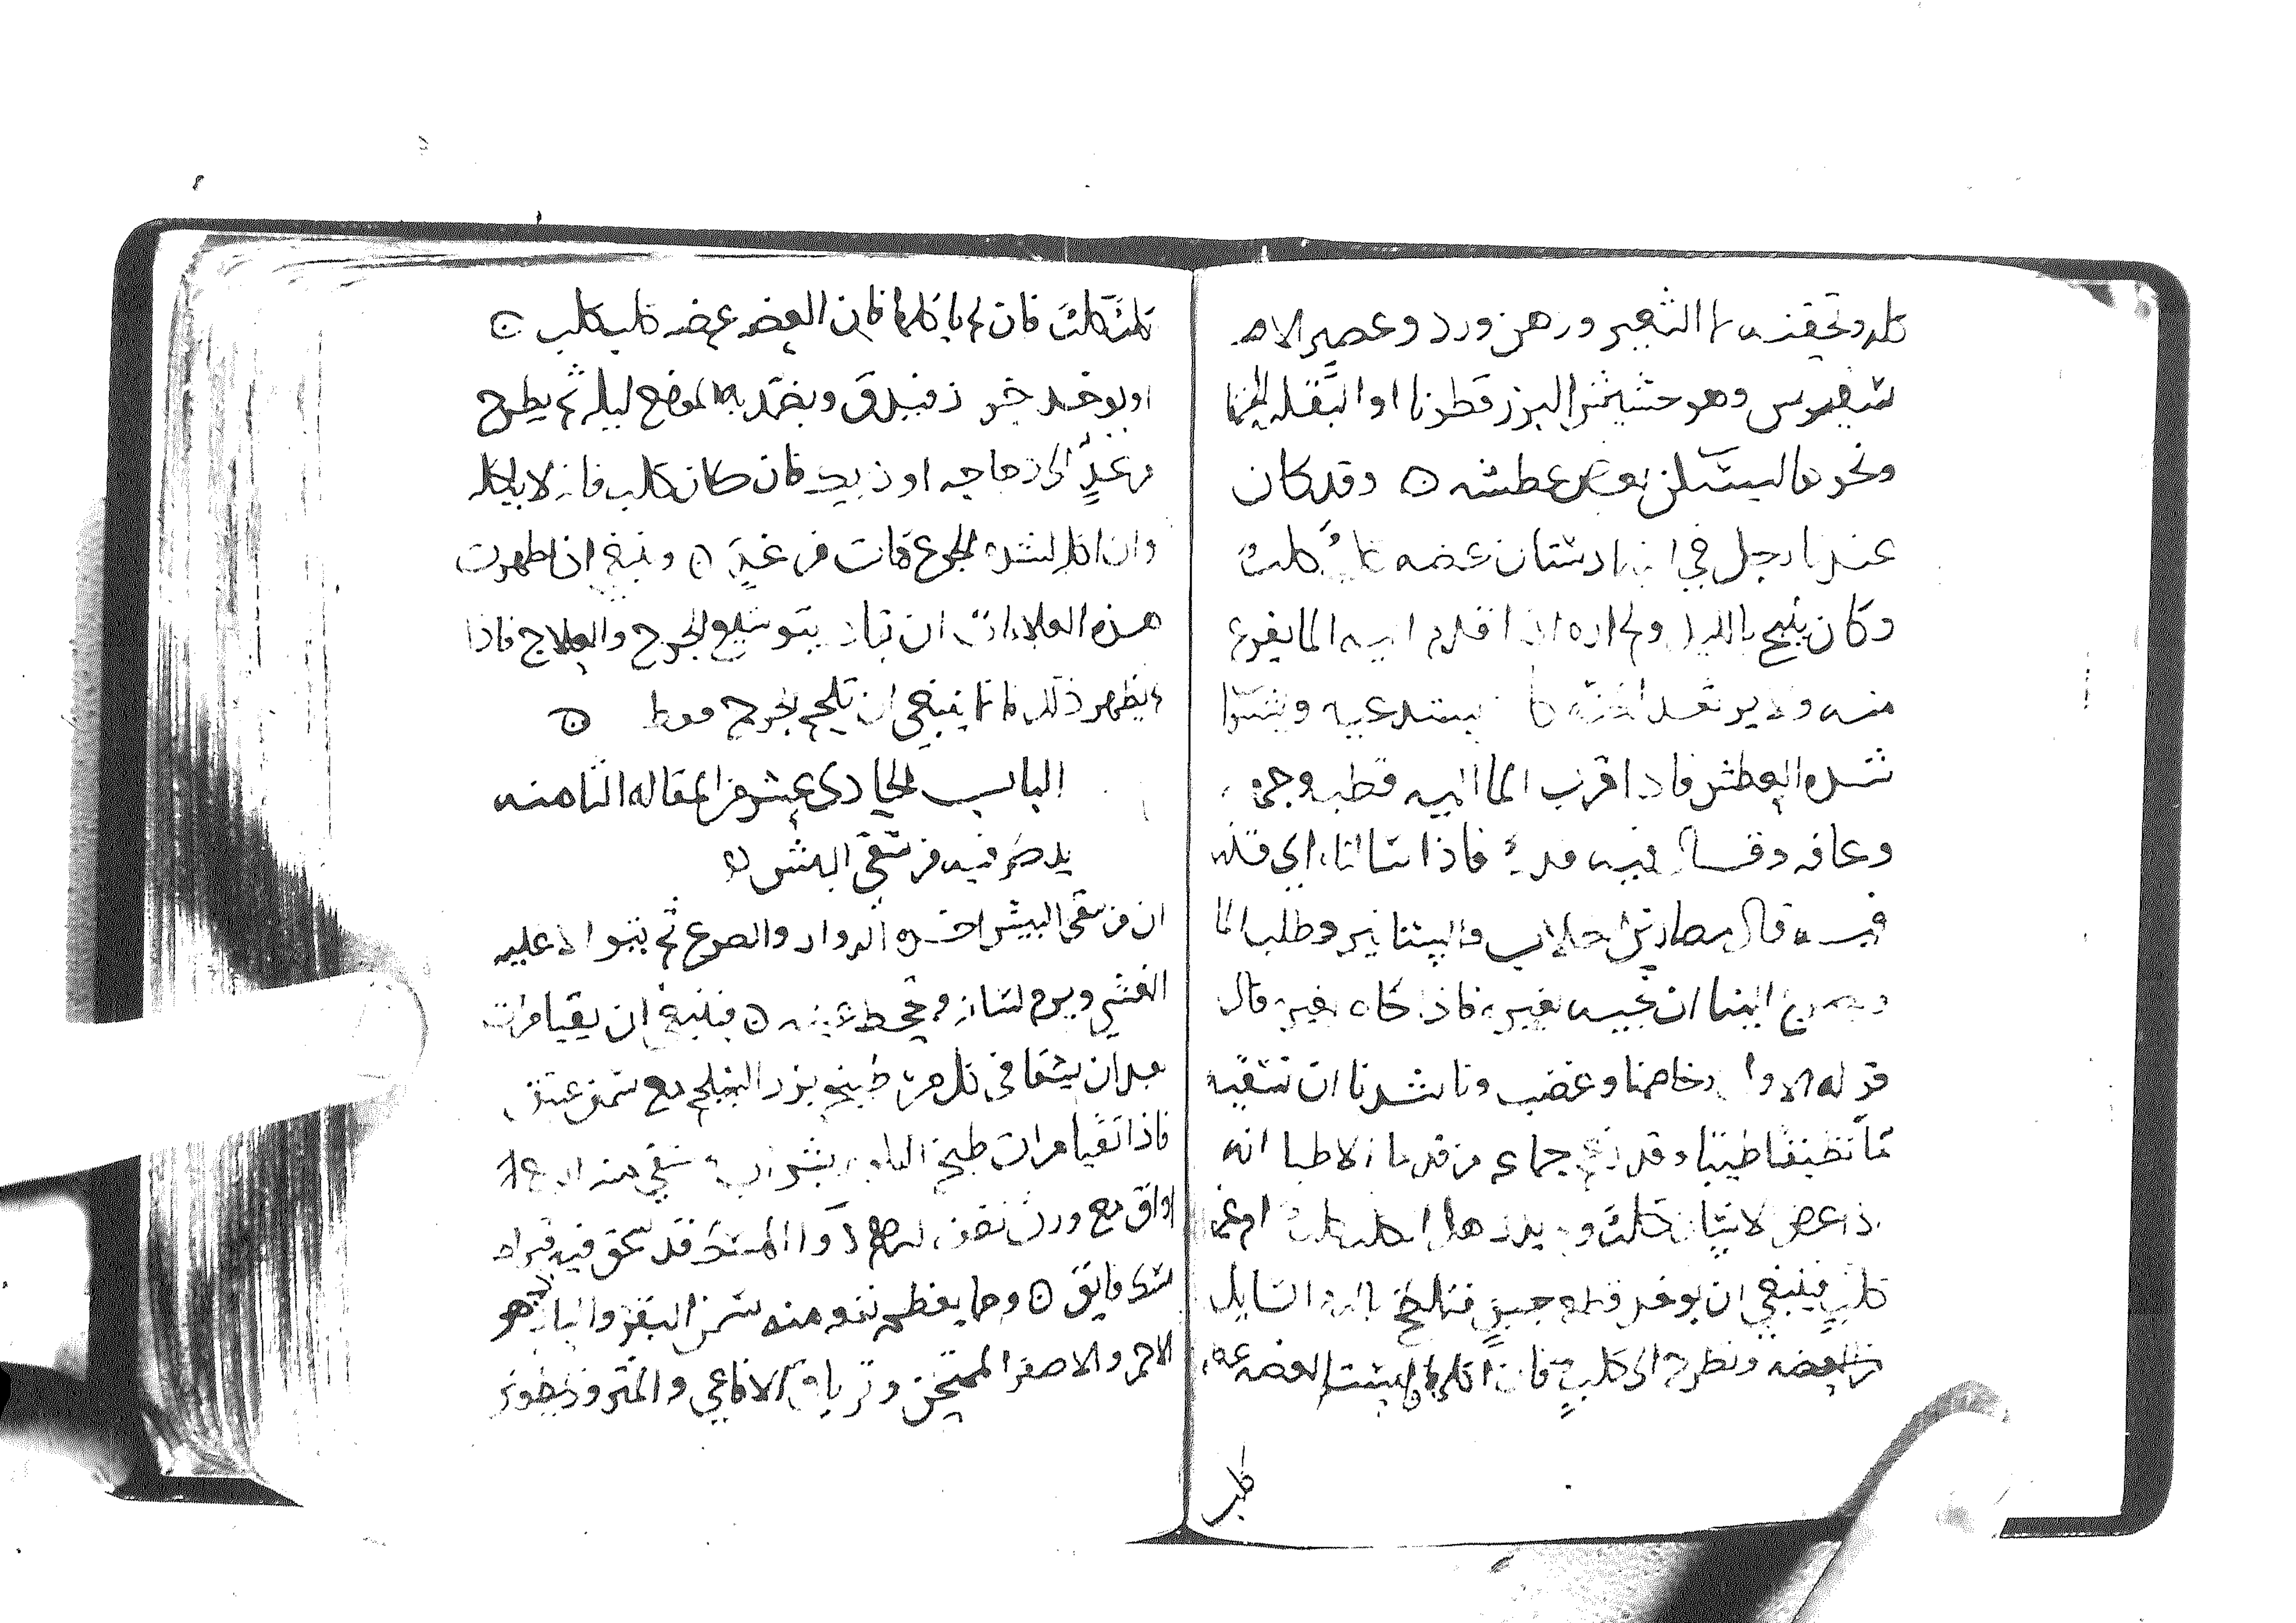 كله وتحقنه بما الشعير ودهن ورد وعصير
وهو حشيش البزر قطونا او البقله الحمقا
ونحوها ليسكن بعض عطشه ه وقد كان
عندنا رجل في البيمارستان عضه كلب
وكان ينبح بالليل ولم اره اذا قدم اليه الما يفزع
منه ولا يرتعد لكنه كان يستدعيه ويشكوا
شده العطش فاذا قرب الما اليه قطب وجهه
وعافه وقال فيه قذر فاذا سالناه اي قذر
فيه قال مصارين الكلاب والسنانير وطلب الما
الينا ان نجيه بغيره فاذا جاه بغيره قال
قوله الاول وخاصمنا وغضب وناشدنا ان نسقيه
ما نظيفا طيبا وقد زعم جماعه من قدما الاطبا انه
اذا عض لانسان كلب ولم يدر هل الكلب كلب او غير
كلب فينبغي ان يوخذ قطعه خبز فتلطخ بالدم السايل
من العضه وتطرح الى كلب فان اكلها فليست العضه عضه
كلب
كلب كلب فان لم ياكلها فان العضه عضه كلب كلب ه
او يوخذ جوز فيدق ويضمد به الموضع ليله ثم يطرح
من غد الى دجاجه او ديك فان كان كلب فانه لا ياكله
وان اكله لشده الجوع مات من غد ه وينبغي ان ظهرت
هذه العلامات ان تبادر بتوسيع الجرح والعلاج فاذا
لم يظهر ذلك فانما ينبغي ان تلحم الجرح فقط ه
الباب الحادى عشر من المقاله الثامنه
يذكر فيه من سقي البيش ه
ان من سقي البيش اخذه الدوار والصرع ثم يتوالا عليه
الغشي ويرم لسانه وتجحظ عينه ه فينبغي ان يقيا مرات
بعد ان يسقا في كل مره طبيخ بزر السلجم مع سمن عتيق
فاذا تقيا مرات طبخ البلوط بشراب وسقي منه اربع
اواق مع وزن نصف درهم دوا المسك قد سحق فيه قيراط
مسك فايق ه ومما يعظم نفعه منه سمن البقر والبادزهر
الاحمر والاصفر الممتحن وترياق الافاعي والمثروذيطوز